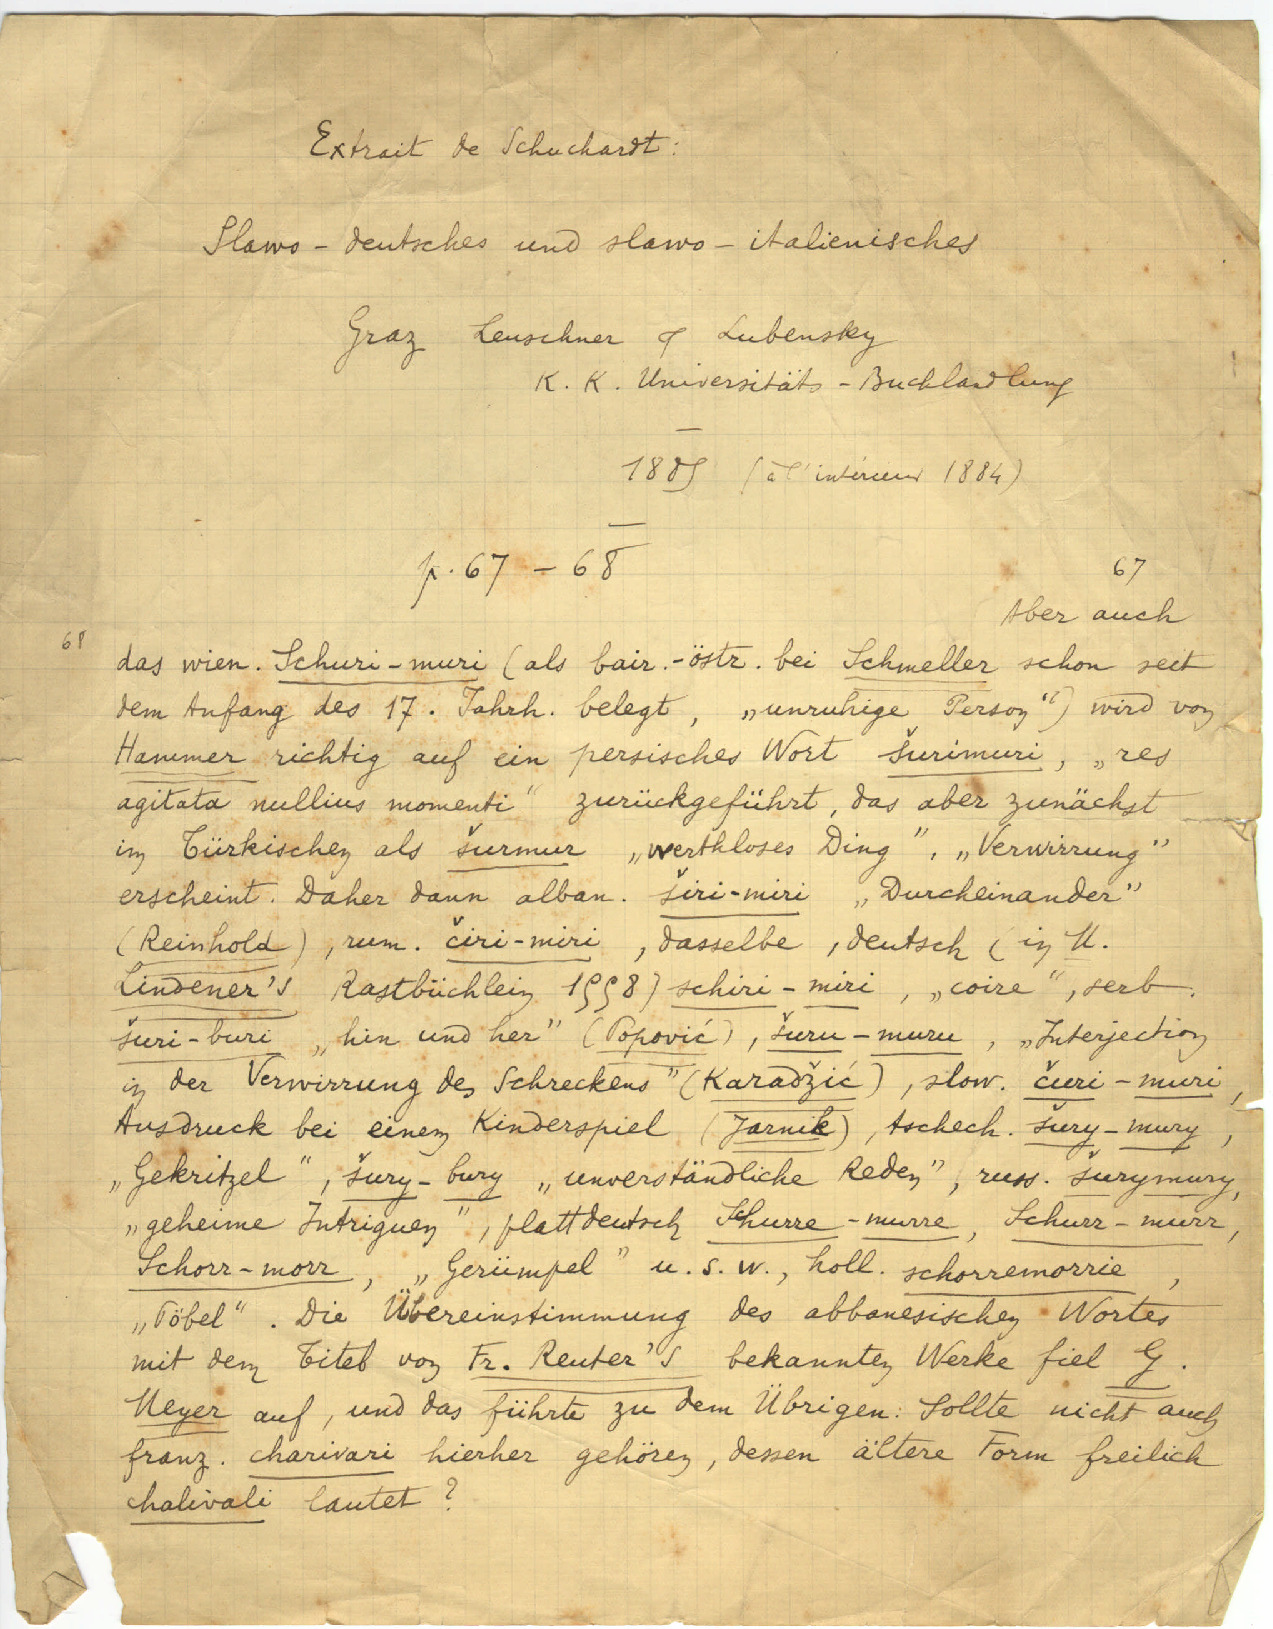 Extrait de Schuchardt:
Slawo-deutsches und slawo-italienisches
Graz Leuschner & Lubensky
K. K. Universitäts-Buchhandlung
1885 (à l'intérieur 1884)
p. 67 – 68
67
Aber auch
68
das wien. Schuri-muri (als bair.-östr. bei Schmeller schon seit
dem Anfang des 17. Jahrh. belegt, „unruhige Person“) wird von
Hammer richtig auf ein persisches Wort šurimuri, „res
agitata nullius momenti“ zurückgeführt, das aber zunächst
in Türkischen als šurmur „werthloses Ding”, „Verwirrung”
erscheint. Daher dann alban. širi-miri „Durcheinander”
(Reinhold), rum. čiri-miri, dasselbe, deutsch (in M.
Lindener's Rastbüchlein 1558) schiri-miri, „coire“, serb.
šuri-buri „hin und her” (Popović), šuru-muru, „Interjection
in der Verwirrung des Schreckens” (Karadžić), slow. čuri-muri,
Ausdruck bei einem Kinderspiel (Jarnik), tschech. šury-mury,
„Gekritzel“, šury-bury „unverständliche Reden”, russ. šurymury,
„geheime Intriguen”, plattdeutsch Schurre-murre, Schurr-murr,
Schorr-morr, „Gerümpel” u. s. w., holl. schorremorrie,
„Pöbel“. Die Übereinstimmung des albanesischen Wortes
mit dem Titel von Fr. Reuter's bekannten Werke fiel G.
Meyer auf, und das führte zu dem Übrigen. Sollte nicht auch
franz. charivari hierher gehören, dessen ältere Form freilich
chalivali lautet?